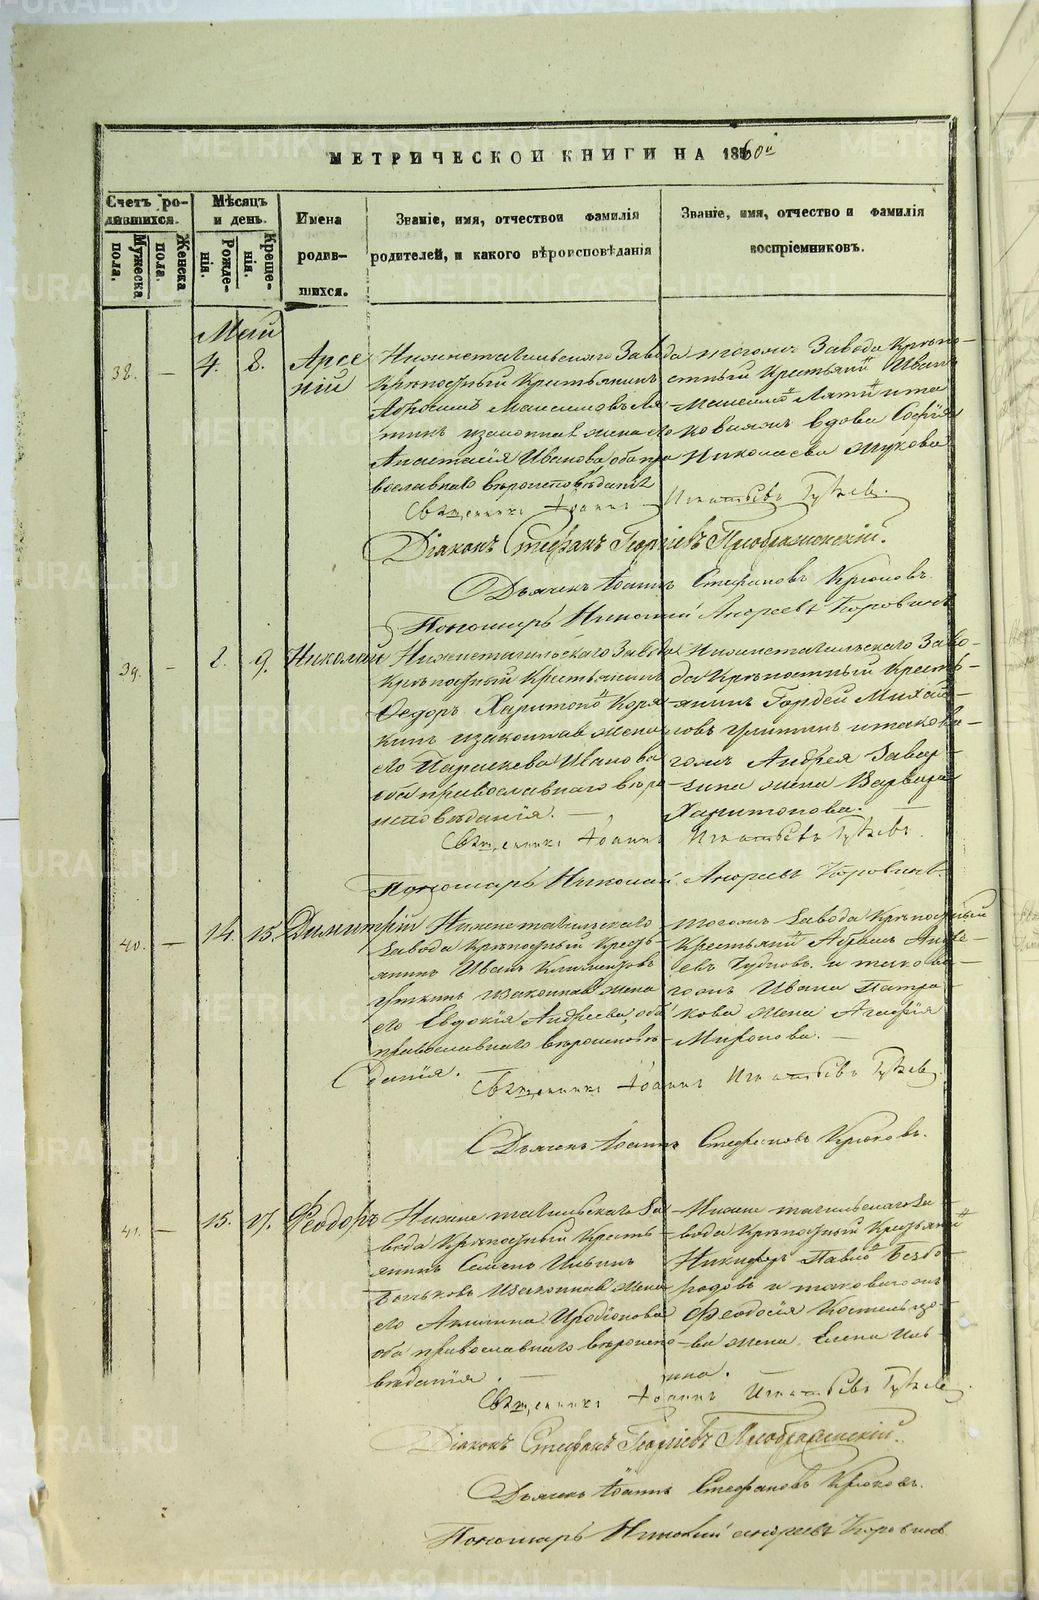 МЕТРИЧЕСКОЙ КНИГИ НА 1860й
Счетъ ро-
дившихся.
Мужеска
пола.
Женска
пола.
Мѣсяцъ
и день.
Рожде-
нія.
Креще-
нія.
Имена
родив-
шихся.
Званіе, имя, отчество и фамилія
родителей, и какого вѣроисповѣданія
Званіе, имя, отчество и фамилія
воспріемниковъ.
Май
38. — 4. 8. Арсе
ній
Нижнетагильскаго Завода
Крѣпостный Крестьянинъ
Максимовъ Ля
тинъ изаконная жена его
Анастасія Иванова оба пра
вославнаго вѣроисповѣданія
тогожъ Завода Крѣпо-
стный Крестьянинъ Иванъ
ита
коваяжъ вдова Софія
Николаева Жукова
Священникъ Іоаннъ Игнатьевъ
Діаконъ Стефанъ Георгіевъ Преображенскій.
Дьячекъ Іоаннъ Стефановъ Крюковъ.
Пономарь Николай Андреевъ Коровинъ
39. — 8. 9. Николай
Нижнетагильскаго Завода
Крѣпостный Крестьянинъ
Федоръ Харитоновъ Коря
кинъ изаконная жена
его Параскева Иванова
оба православнаго вѣро
исповѣданія. —
Нижнетагильскаго Заво-
да Крѣпостный Кресть-
янинъ Гордей Михай-
ловъ итакова-
гожъ Андрея Завар-
зина жена Варвара
Харитонова. —
Священникъ Іоаннъ Игнатьевъ
Пономарь Николай Андреевъ Коровинъ.
40. — 14. 15. Димитрій
Нижнетагильскаго
Завода Крѣпостный Кресть-
янинъ Иванъ Климентовъ
Уткинъ изаконная жена
его Евдокія Андреева, оба
православнаго вѣроисповѣ-
данія.
тогожъ Завода Крѣпостный
Крестьянинъ Андре-
евъ Чудновъ и такова-
гожъ Ивана Патра-
кова жена Агафія
Миронова. —
Священникъ Іоаннъ Игнатьевъ
Дьячекъ Іоаннъ Стефановъ Крюковъ.
41. — 15. 17. Ѳеодоръ
Нижнетагильскаго За
вода Крѣпостный Кресть-
янинъ Семенъ Ильинъ
изаконная жена
его Акилина Иродіонова
оба православнаго вѣроиспо-
вѣданія. —
Нижнетагильскаго За
вода Крѣпостный Крестьянинъ
Никифоръ Павловъ Безбо-
родовъ и таковагожъ
Феодосія
ва жена Елена Иль-
ина.
Священникъ Іоаннъ Игнатьевъ
Діаконъ Стефанъ Георгіевъ Преображенскій.
Дьячекъ Іоаннъ Стефановъ Крюковъ.
Пономарь Николай Андреевъ Коровинъ
METRIKI.GASO-URAL.RU